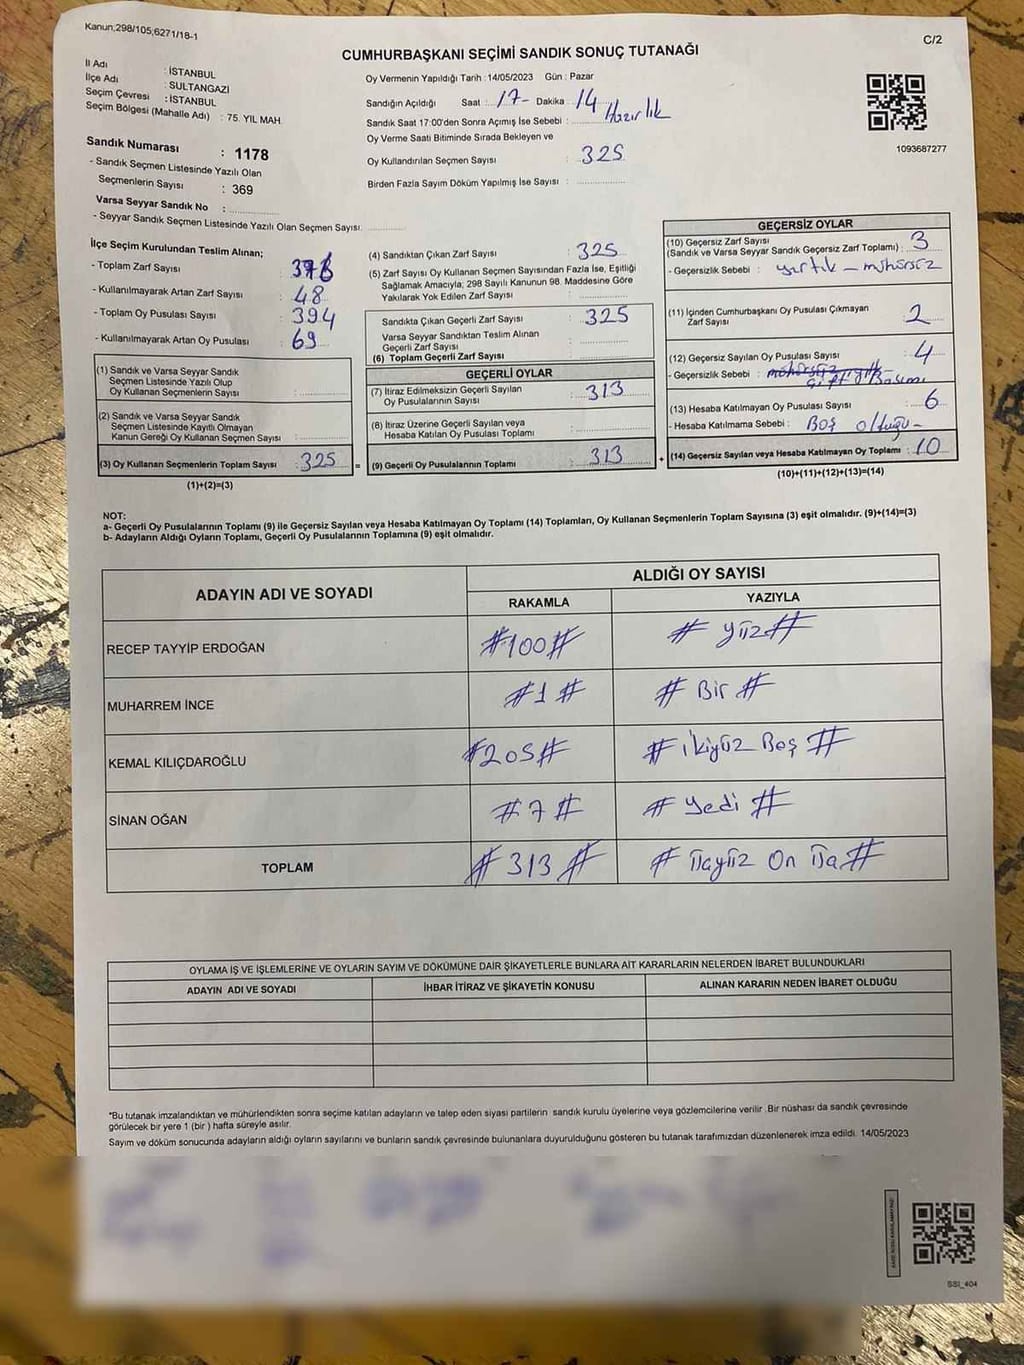 Kanun,298/105,6271/18-1
C/2
CUMHURBAŞKANI SEÇİMİ SANDIK SONUÇ TUTANAĞI
İl Adı : İSTANBUL
İlçe Adı : SULTANGAZI
Seçim Çevresi : İSTANBUL
Seçim Bölgesi (Mahalle Adı) : 75. YIL MAH.
Oy Vermenin Yapıldığı Tarih : 14/05/2023 Gün : Pazar
Sandığın Açıldığı Saat : 17- Dakika : 14
Sandık Saat 17:00'den Sonra Açımış İse Sebebi : Hazırlık
Oy Verme Saati Bitiminde Sırada Bekleyen ve
Oy Kullandırılan Seçmen Sayısı : 325
Birden Fazla Sayım Döküm Yapılmış İse Sayısı :
1093687277
Sandık Numarası : 1178
- Sandık Seçmen Listesinde Yazılı Olan
Seçmenlerin Sayısı : 369
Varsa Seyyar Sandık No :
- Seyyar Sandık Seçmen Listesinde Yazılı Olan Seçmen Sayısı:
İlçe Seçim Kurulundan Teslim Alınan;
- Toplam Zarf Sayısı :
- Kullanılmayarak Artan Zarf Sayısı : 48
- Toplam Oy Pusulası Sayısı : 394
- Kullanılmayarak Artan Oy Pusulası : 69
(1) Sandık ve Varsa Seyyar Sandık
Seçmen Listesinde Yazılı Olup
Oy Kullanan Seçmenlerin Sayısı :
(2) Sandık ve Varsa Seyyar Sandık
Seçmen Listesinde Kayıtlı Olmayan
Kanun Gereği Oy Kullanan Seçmen Sayısı :
(3) Oy Kullanan Seçmenlerin Toplam Sayısı : 325 =
(1)+(2)=(3)
(4) Sandıktan Çıkan Zarf Sayısı : 325
(5) Zarf Sayısı Oy Kullanan Seçmen Sayısından Fazla İse, Eşitliği
Sağlamak Amacıyla; 298 Sayılı Kanunun 98. Maddesine Göre
Yakılarak Yok Edilen Zarf Sayısı :
Sandıkta Çıkan Geçerli Zarf Sayısı : 325
Varsa Seyyar Sandıktan Teslim Alınan
Geçerli Zarf Sayısı :
(6) Toplam Geçerli Zarf Sayısı :
GEÇERLİ OYLAR
(7) İtiraz Edilmeksizin Geçerli Sayılan
Oy Pusulalarının Sayısı : 313
(8) İtiraz Üzerine Geçerli Sayılan veya
Hesaba Katılan Oy Pusulası Toplamı :
(9) Geçerli Oy Pusulalarının Toplamı : 313 +
GEÇERSİZ OYLAR
(10) Geçersiz Zarf Sayısı
(Sandık ve Varsa Seyyar Sandık Geçersiz Zarf Toplamı) : 3
- Geçersizlik Sebebi : yırtık - mühürsüz
(11) İçinden Cumhurbaşkanı Oy Pusulası Çıkmayan
Zarf Sayısı : 2
(12) Geçersiz Sayılan Oy Pusulası Sayısı : 4
- Geçersizlik Sebebi :
(13) Hesaba Katılmayan Oy Pusulası Sayısı : 6
- Hesaba Katılmama Sebebi : Boş olduğu-
(14) Geçersiz Sayılan veya Hesaba Katılmayan Oy Toplamı : 10
(10)+(11)+(12)+(13)=(14)
NOT:
a- Geçerli Oy Pusulalarının Toplamı (9) ile Geçersiz Sayılan veya Hesaba Katılmayan Oy Toplamı (14) Toplamları, Oy Kullanan Seçmenlerin Toplam Sayısına (3) eşit olmalıdır. (9)+(14)=(3)
b- Adayların Aldığı Oyların Toplamı, Geçerli Oy Pusulalarının Toplamına (9) eşit olmalıdır.
ADAYIN ADI VE SOYADI
ALDIĞI OY SAYISI
RAKAMLA YAZIYLA
RECEP TAYYİP ERDOĞAN #100# # yüz #
MUHARREM İNCE #1# # Bir #
KEMAL KILIÇDAROĞLU #205# # ikiyüz Beş #
SİNAN OĞAN #7# # yedi #
TOPLAM #313# # üçyüz On üç #
OYLAMA İŞ VE İŞLEMLERİNE VE OYLARIN SAYIM VE DÖKÜMÜNE DAİR ŞİKAYETLERLE BUNLARA AİT KARARLARIN NELERDEN İBARET BULUNDUKLARI
ADAYIN ADI VE SOYADI İHBAR İTİRAZ VE ŞİKAYETİN KONUSU ALINAN KARARIN NEDEN İBARET OLDUĞU
*Bu tutanak imzalandıktan ve mühürlendikten sonra seçime katılan adayların ve talep eden siyasi partilerin sandık kurulu üyelerine veya gözlemcilerine verilir. Bir nüshası da sandık çevresinde
görülecek bir yere 1 (bir ) hafta süreyle asılır.
Sayım ve döküm sonucunda adayların aldığı oyların sayılarını ve bunların sandık çevresinde bulunanlara duyurulduğunu gösteren bu tutanak tarafımızdan düzenlenerek imza edildi. 14/05/2023
SSI_404